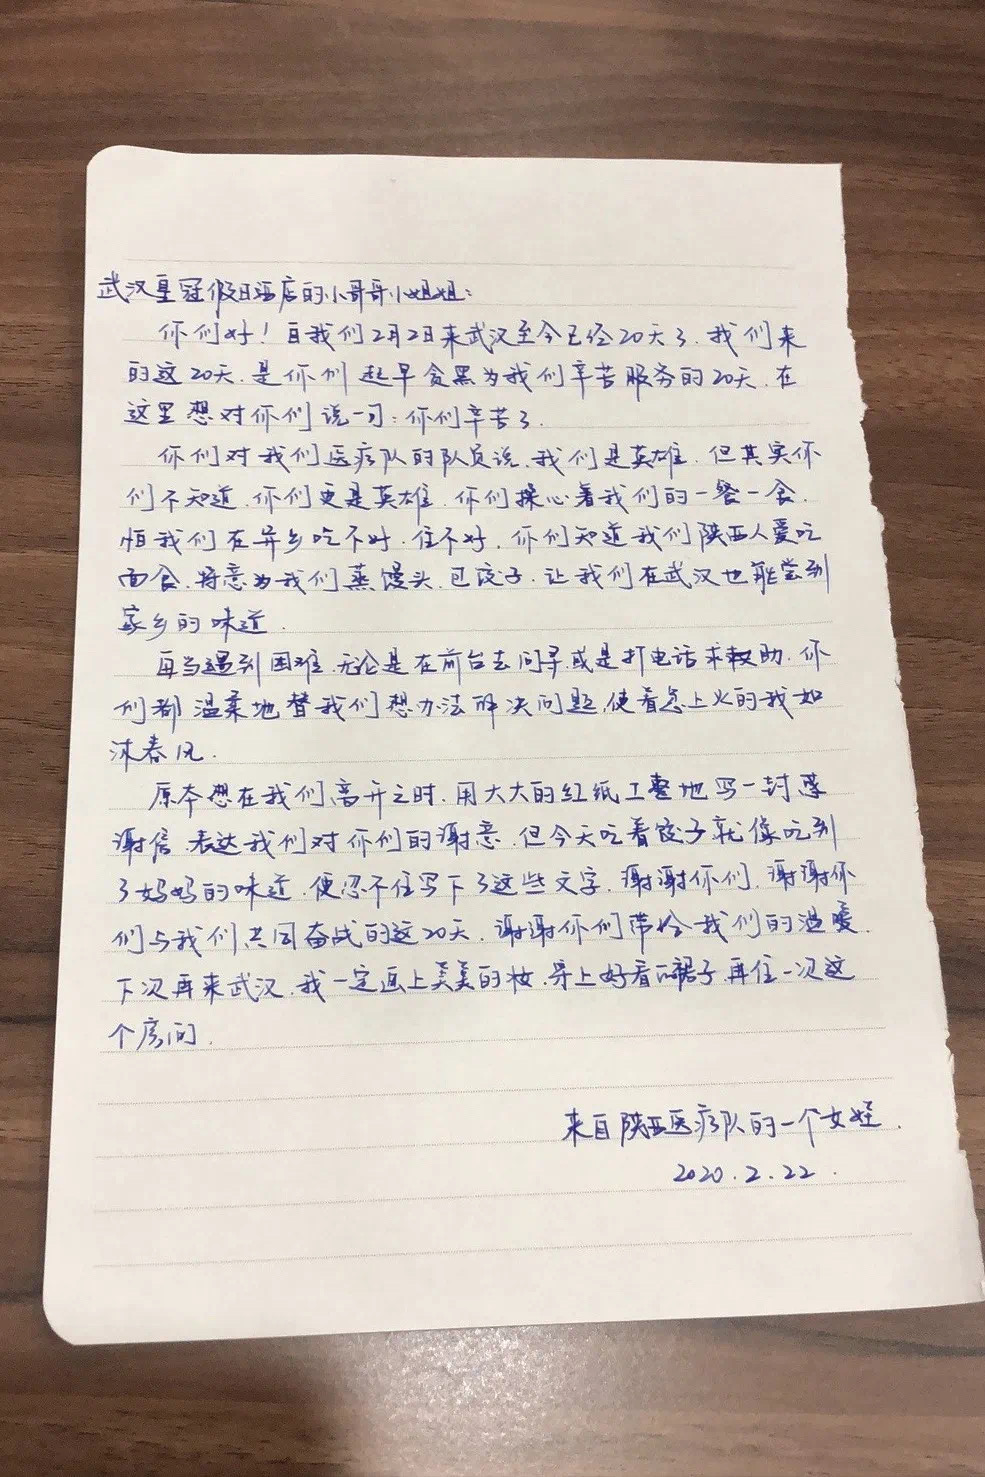 武汉皇冠假日酒店的小哥哥小姐姐:
你们好!自我们2月2日来武汉至今已经20天了.我们来
的这20天.是你们起早贪黑为我们辛苦服务的20天.在
这里想对你们说一句:你们辛苦了.
你们对我们医疗队的队员说.我们是英雄.但其实你
们不知道.你们更是英雄.你们操心着我们的一餐一食.
怕我们在异乡吃不好.住不好.你们知道我们陕西人爱吃
面食.特意为我们蒸馒头.包饺子.让我们在武汉也能尝到
家乡的味道.
每当遇到困难.无论是在前台去问寻或是打电话求救助.你
们都温柔地替我们想办法解决问题,使着急上火的我如
沐春风.
原本想在我们离开之时.用大大的红纸工整地写一封感
谢信.表达我们对你们的谢意.但今天吃着饺子就像吃到
了妈妈的味道.便忍不住写下了这些文字.谢谢你们.谢谢你
们与我们共同奋战的这20天.谢谢你们带给我们的温暖.
下次再来武汉.我一定画上美美的妆.穿上好看的裙子.再住一次这
个房间.
来自陕西医疗队的一个女娃.
2020.2.22.